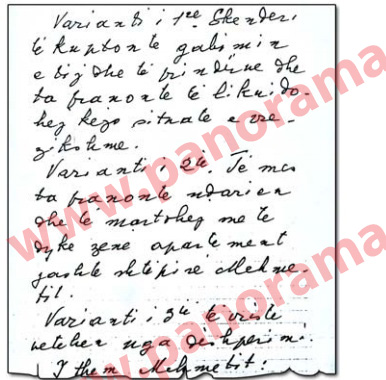 Varianti i 1re Skenderi
të kuptonte gabimin
e tij dhe të prindëve dhe
ta pranonte të likuido-
hej kejo situate e rre-
zikshme.
Varianti i 2të. Të mos
ta pranonte ndarjen
dhe të martohej me të
dyke zene apartement
jashtë shtëpisë Mehme-
tit.
Varianti i 3të të vriste
vetehen nga dëshperimi.
I them Mehmetit:
www.panorama
www.panorama
www.panorama